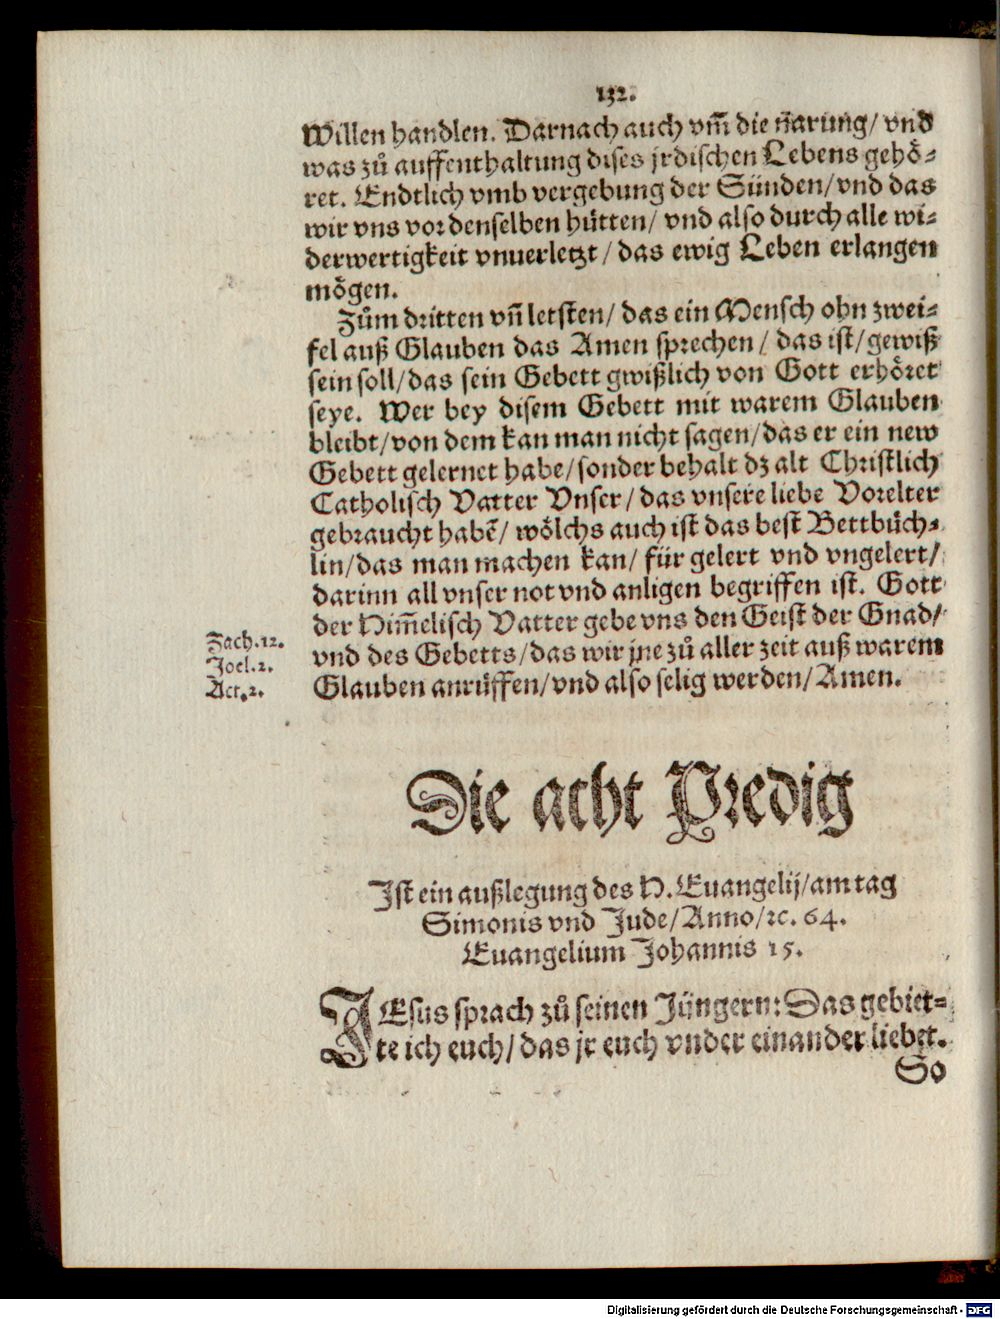 132.
Willen handlen. Darnach auch vm̃ die närung/ vnd
was zů auffenthaltung dises jrdischen Lebens gehö-
ret. Endtlich vmb vergebung der Sünden/ vnd das
wir vns vor denselben hütten/ vnd also durch alle wi-
derwertigkeit vnuerletzt/ das ewig Leben erlangen
mögen.
Zům dritten vñ letsten/ das ein Mensch ohn zwei-
fel auß Glauben das Amen sprechen/ das ist/ gewiß
sein soll/ das sein Gebett gwißlich von Gott erhöret
seye. Wer bey disem Gebett mit warem Glauben
bleibt/ von dem kan man nicht sagen/ das er ein new
Gebett gelernet habe/ sonder behalt dz alt Christlich
Catholisch Vatter Vnser/ das vnsere liebe Vorelter
gebraucht habē/ wölchs auch ist das best Bettbüch-
lin/ das man machen kan/ für gelert vnd vngelert/
darinn all vnser not vnd anligen begriffen ist. Gott
der Him̃elisch Vatter gebe vns den Geist der Gnad/
Zach.12.
vnd des Gebetts/ das wir jne zů aller zeit auß warem
Joel.2.
Glauben anrüffen/ vnd also selig werden/ Amen.
Act.2.
Die acht Predig
Ist ein außlegung des H. Euangelij/ am tag
Simonis vnd Jude/ Anno/ ꝛc. 64.
Euangelium Johannis 15.
JEsus sprach zů seinen Jüngern: Das gebiet-
te ich euch/ das jr euch vnder einander liebet.
So
Digitalisierung gefördert durch die Deutsche Forschungsgemeinschaft - DFG